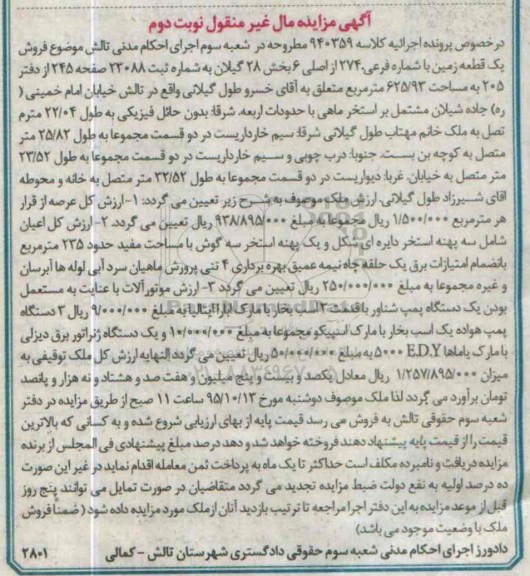 آگهی مزایده مال غیر منقول نوبت دوم
درخصوص پرونده اجرائیه کلاسه ۹۴۰۳۵۹ مطروحه در شعبه سوم اجرای احکام مدنی تالش موضوع فروش
یک قطعه زمین با شماره فرعی ۲۷۴ از اصلی ۶ بخش ۲۸ گیلان به شماره ثبت ۲۳۰۸۸ صفحه ۲۴۵ از دفتر
۲۰۵ به مساحت ۶۲۵/۹۳ مترمربع متعلق به آقای خسرو طول گیلانی واقع در تالش خیابان امام خمینی (
ره) جاده شیلان مشتمل بر استخر ماهی با حدودات اربعه. شرقا: بدون حائل فیزیکی به طول ۲۲/۰۴ مترم
تصل به ملک خانم مهتاب طول گیلانی شرقا: سیم خارداریست در دو قسمت مجموعا به طول ۲۵/۸۲ متر
متصل به کوچه بن بست. جنوبا: درب چوبی و سیم خارداریست در دو قسمت مجموعا به طول ۲۳/۵۲
متر متصل به خیابان. غربا: دیواریست در دو قسمت مجموعا به طول ۳۲/۵۲ متر متصل به خانه و محوطه
آقای شیرزاد طول گیلانی. ارزش ملک موصوف به شرح زیر تعیین می گردد: ۱- ارزش کل عرصه از قرار
هر مترمربع ۱/۵۰۰/۰۰۰ ریال مجموعا به مبلغ ۹۳۸/۸۹۵/۰۰۰ ریال تعیین می گردد. ۲- ارزش کل اعیان
شامل سه پهنه استخر دایره ای شکل و یک پهنه استخر سه گوش با مساحت مفید حدود ۲۳۵ مترمربع
بانضمام امتیازات برق یک حلقه چاه نیمه عمیق بهره برداری ۴ تنی پرورش ماهیان سرد آبی لوله ها آبرسان
و غیره مجموعا به مبلغ ۲۵۰/۰۰۰/۰۰۰ ریال تعیین می گردد ۳- ارزش موتورآلات با عنایت به مستعمل
بودن یک دستگاه پمپ شناور با قدمت ۳ اسب بخار با مارک پارا ایتالیا به مبلغ ۹/۰۰۰/۰۰۰ ریال ۳ دستگاه
پمپ هواده یک اسب بخار با مارک اسپیکو مجموعا به مبلغ ۱۰/۰۰۰/۰۰۰ و یک دستگاه ژنراتور برق دیزلی
با مارک یاماها E.D.Y ۵۰۰۰ به مبلغ ۵۰/۰۰۰/۰۰۰ ریال تعیین می گردد النهایه ارزش کل ملک توقیفی به
میزان ۱/۲۵۷/۸۹۵/۰۰۰ ریال معادل یکصد و بیست و پنج میلیون و هفت صد و هشتاد و نه هزار و پانصد
تومان برآورد می گردد لذا ملک موصوف دوشنبه مورخ ۹۵/۱۰/۱۳ ساعت ۱۱ صبح از طریق مزایده در دفتر
شعبه سوم حقوقی تالش به فروش می رسد قیمت پایه از بهای ارزیابی شروع شده و به کسانی که بالاترین
قیمت را از قیمت پایه پیشنهاد دهند فروخته خواهد شد و دهد درصد مبلغ پیشنهادی فی المجلس از برنده
مزایده دریافت و نامبرده مکلف است حداکثر تا یک ماه به پرداخت ثمن معامله اقدام نماید در غیر این صورت
ده درصد اولیه به نفع دولت ضبط مزایده تجدید می گردد متقاضیان در صورت تمایل می توانند پنج روز
قبل از موعد مزایده به این دفتر اجرا مراجعه تا ترتیب بازدید آنان از ملک مورد مزایده داده شود ( ضمنا فروش
ملک با وضعیت موجود می باشد)
دادورز اجرای احکام مدنی شعبه سوم حقوقی دادگستری شهرستان تالش - کمالی
۲۸۰۱